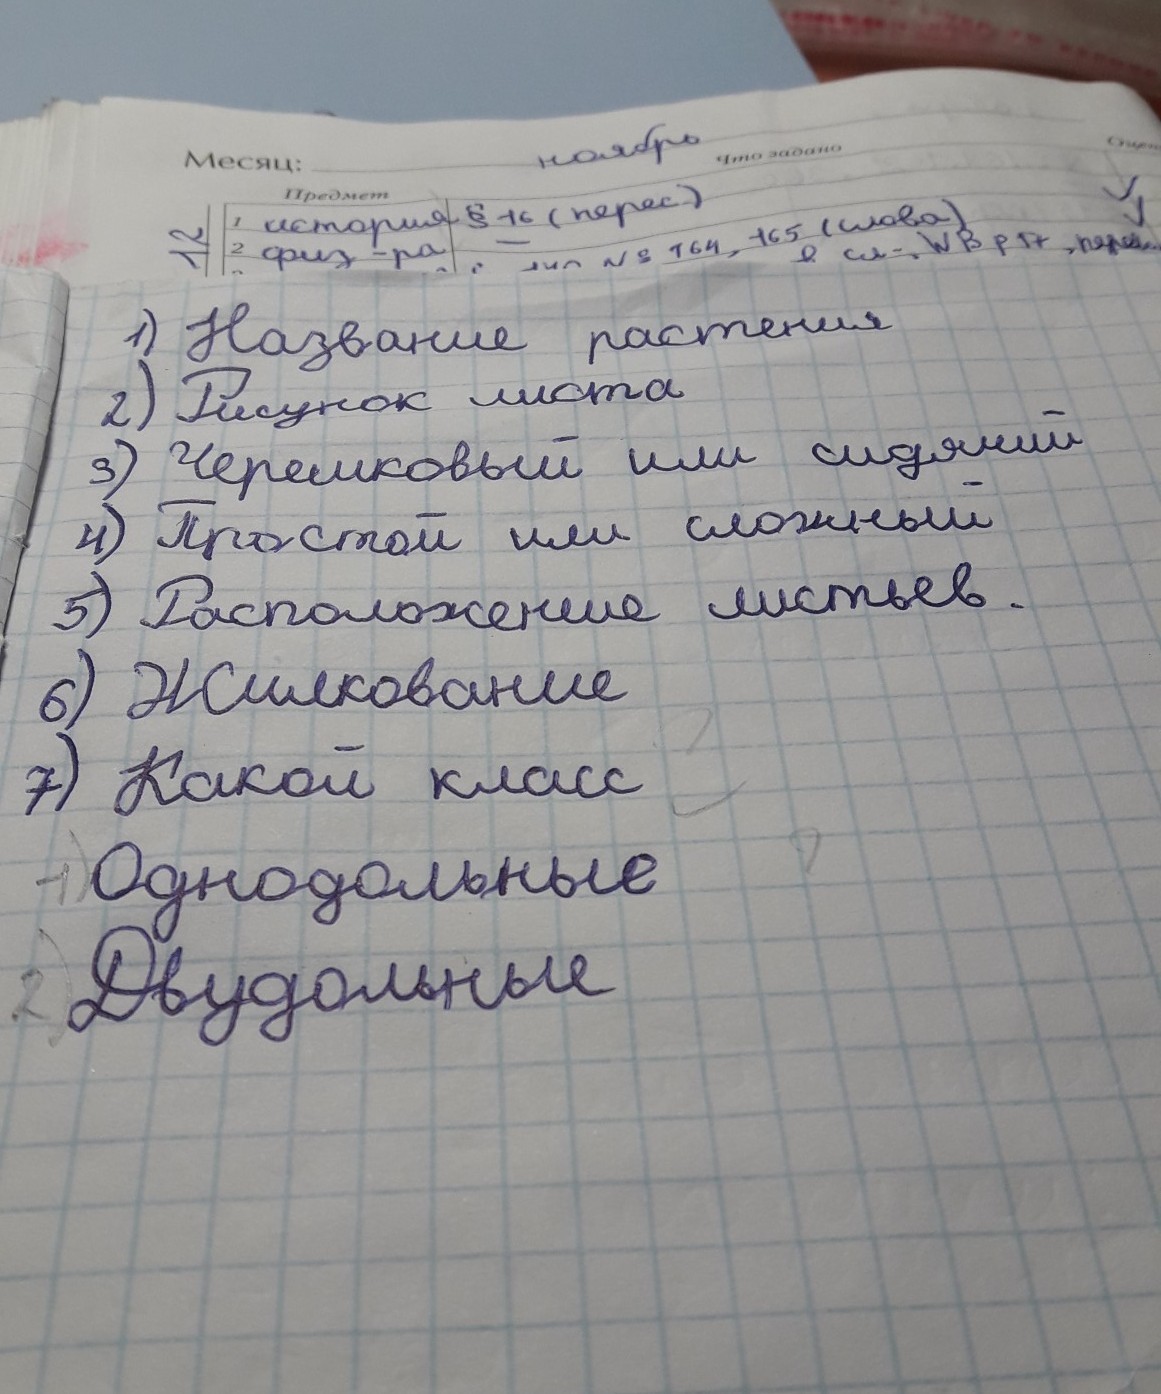 Месяц: ноябрь
Предмет Что задано
12 1 история § 16 (перес.)
2 физ-ра — № 164, 165 (слова)
WB p 57
1) Название растения
2) Рисунок листа
3) Черешковый или сидячий
4) Простой или сложный
5) Расположение листьев.
6) Жилкование
7) Какой класс
1) Однодольные
2) Двудольные